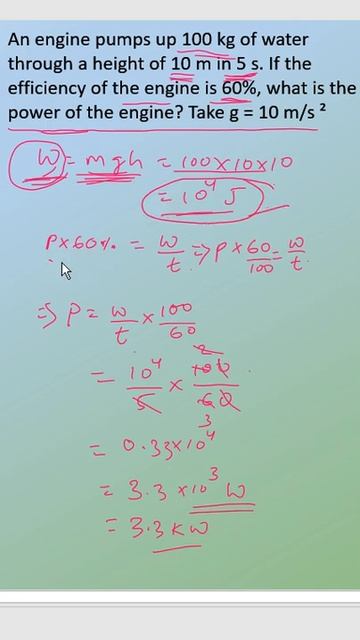 An engine pumps up 100 kg of water
through a height of 10 m in 5 s. If the
efficiency of the engine is 60%, what is the
power of the engine? Take g = 10 m/s ²
W = mgh = 100X10X10
= 10⁴ J
PX60% = W/t ⇒ P X 60/100 = W/t
⇒ P = W/t X 100/60
= 10⁴/5 X 100/60 2 3
= 0.33X10⁴
= 3.3 X10³ W
= 3.3 KW